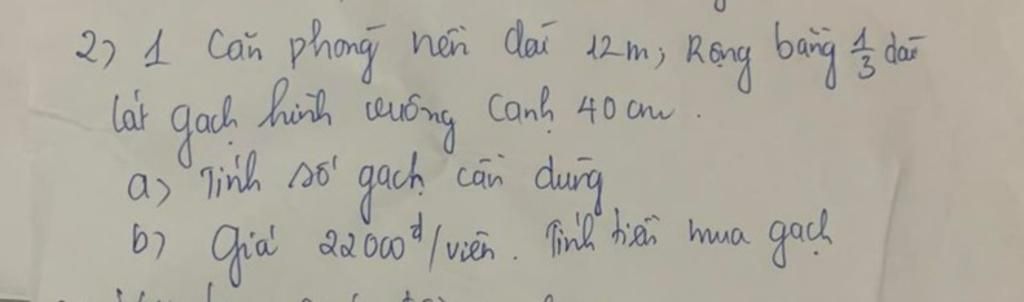 2) 1 Căn phòng nền dài 12m; Rộng bằng 1/3 dài
lát gạch hình vuông cạnh 40 cm.
a) Tính số gạch cần dùng
b) Giá 22000đ/viên. Tính tiền mua gạch